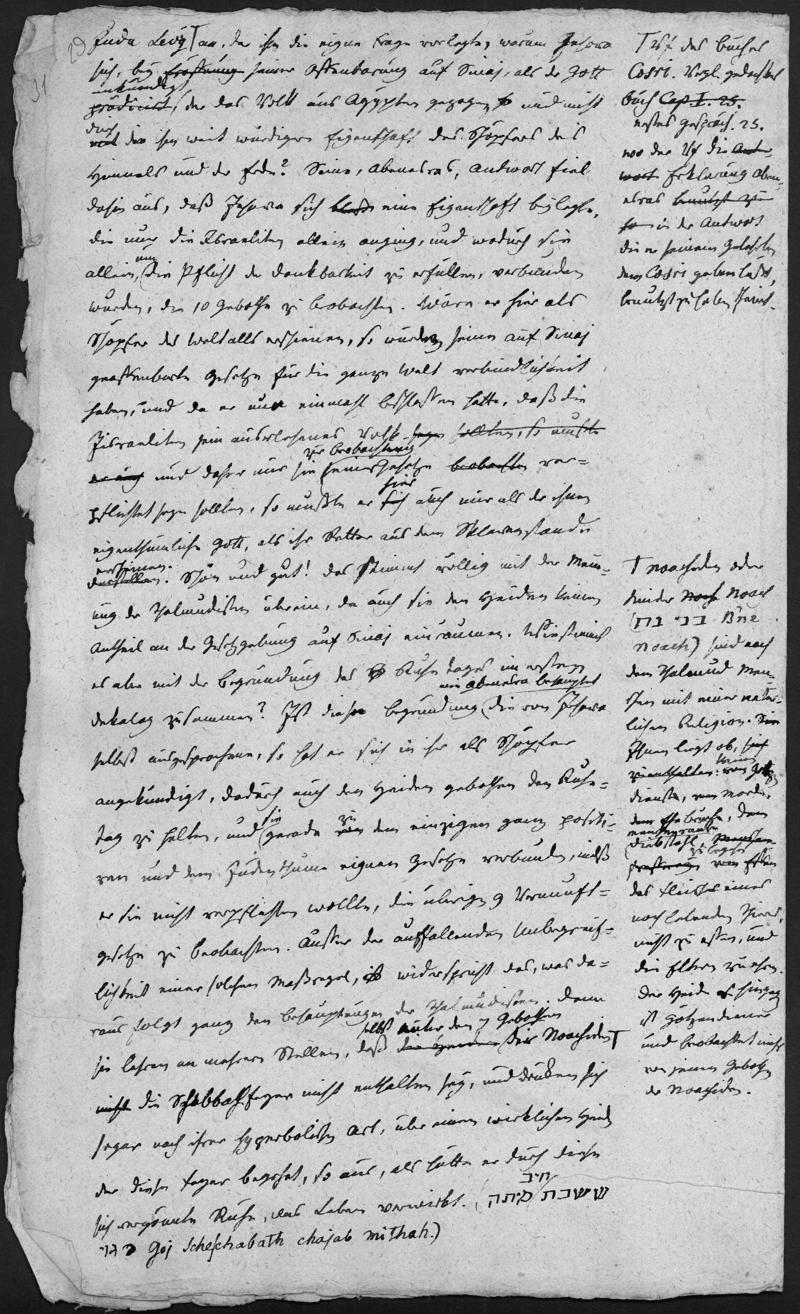 29
31
Juda Levy Ꞁ an, der ihm die eigne Frage vorlegte, warum Jehova
sich, bey seiner Offenbarung auf Sinaj, als der Gott
ankündigt, der das Volk aus Aegypten gezogen und nicht
durch den ihm weit würdigern Eigenschaft des Schöpfers des
Himmels und der Erde? Seine, Abenesras, Antwort fiel
dahin aus, daß Jehova sich eine Eigenschaft beylegte,
die nur die Israeliten allein anging, und wodurch sie
allein, um die Pflicht der Dankbarkeit zu erfüllen, verbunden
wurden, die 10 Gebothe zu beobachten. Wäre er hier als
Schöpfer des Weltalls erschienen, so würden seine auf Sinaj
geoffenbarte Gesetze für die ganze Welt Verbindlichkeit
haben, und da er nun einmahl beschlossen hatte, daß die
Israeliten sein auserlesenes Volk seyn sollten, so mußte
und daher nur sie zur Beobachtung seiner Gesetze ver=
pflichtet seyn sollten, so mußte er hier sich auch nur als der ihnen
eigenthümliche Gott, als ihr Retter aus dem Sklavenstande
erscheinen. Schön und gut! das stimmt völlig mit der Mein=
ung der Talmudisten überein, da auch sie den Heiden keinen
Antheil an der Gesetzgebung auf Sinaj einräumen. Wie stimmt
es aber mit der Begründung des Ruhetages im ersten
Dekalog zusammen? Ist diese Begründung, wie Abenesra behauptet, die von Jehova
selbst ausgesprochene, so hat er sich in ihr als Schöpfer
angekündigt, dadurch auch den Heiden gebothen den Ruhe=
tag zu halten, und sie gerade zu dem einzigen ganz positi=
ven und dem Judenthume eignen Gesetze verbunden, während
er sie nicht verpflichten wollte, die übrigen 9 Vernunft=
gesetze zu beobachten. Außer der auffallenden Unbegreif=
lichkeit einer solchen Maßregel, widerspricht das, was da=
raus folgt ganz den Behauptungen der Talmudisten. Denn
sie lehren an mehrern Stellen, daß selbst unter den 7 Gebothen der Noachiden Ꞁ
die Schabbathfeyer nicht enthalten sey, und drücken sich
sogar nach ihrer hyperbolischen Art, über einen wirklichen Heiden
der diese Feyer begehet, so aus, als hätte er durch diese
sich vergönnte Ruhe, das Leben verwirkt. (ששבת חייב מיתה
גוי Goj Scheschabath chajab mithah.)
Ꞁ Vf. des Buches
Cosri. Vergl. gedachtes
Buch Cap I. 25.
erstes Gespräch. 25.
wo der Vf die
Erklärung Aben=
esras
in der Antwort
die er seinem Gelehrten
dem Cosri geben läßt,
benutzt zu haben scheint.
Ꞁ Noachiden oder
Kinder Noach
(בני נח Bne
Noach) sind nach
dem Thalmud Men=
schen mit einer natür=
lichen Religion.
Ihnen liegt ob, sich
zu enthalten: vom Götzen
dienste, vom Morde,
dem Ehebruche, dem
Diebstahl,
das Fleisch eines
noch lebenden Thiers,
nicht zu essen, und
die Eltern zu ehren.
Der Heide hingegen
ist Götzendiener
und beobachtet nichts
von jenen Gebothen
der Noachiden.